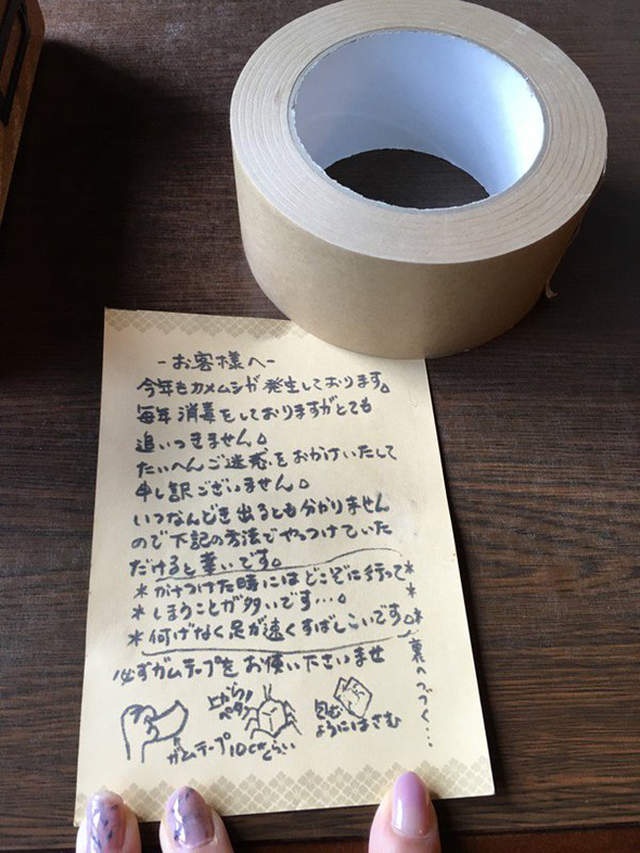 -お客様へ-
今年もカメムシが発生しております。
毎年消毒をしておりますがとても
追いつきません。
たいへんご迷惑をおかけいたして
申し訳ございません。
いつなんどき出るとも分かりません
ので下記の方法でやっつけていた
だけると幸いです。
*かけつけた時にはどこぞに行って*
*しまうことが多いです…。*
*何げなく足が速くすばしこいです。*
必ずガムテープをお使い下さいませ
ガムテープ10cmくらい
上から
ペタッ
包む
ようにはさむ
裏へつづく…